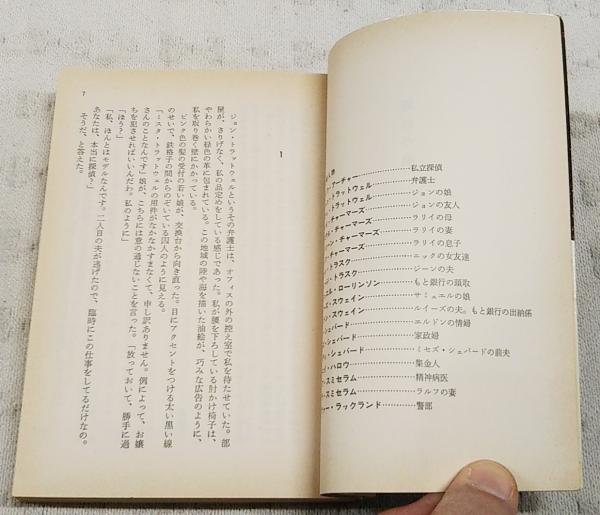 人物
・アーチャー…………私立探偵
・トラットウェル…………弁護士
・トラットウェル…………ジョンの娘
・チャーマーズ…………ジョンの友人
・チャーマーズ…………ラリイの母
ン・チャーマーズ…………ラリイの妻
・チャーマーズ…………ラリイの息子
・トラスク…………ニックの女友達
・トラスク…………ジーンの夫
エル・ローリンソン…………もと銀行の頭取
ズ・スウェイン…………サミュエルの娘
ン・スウェイン…………ルイーズの夫。もと銀行の出納係
・シェパード…………エルドンの情婦
・シェパード…………家政婦
・シェパード…………ミセズ・シェパードの前夫
・ハロウ…………集金人
・スミセラム…………精神病医
・スミセラム…………ラルフの妻
ー・ラックランド…………警部
1
ジョン・トラットウェルというその弁護士は、オフィスの外の控え室で私を待たせていた。部
屋が、さりげなく、私の品定めをしている感じであった。私が腰を下ろしている肘かけ椅子は、
やわらかい緑色の革に包まれている。この地域の陸や海を描いた油絵が、巧みな広告のように、
私を取り巻く壁にかかっている。
ピンク色の髪の受付の若い娘が、交換台から向き直った。目にアクセントをつける太い黒い線
のせいで、鉄格子の間からのぞいている囚人のように見える。
「ミスタ・トラットウェルの用件がなかなかすまなくて、申し訳ありません。例によって、お嬢
さんのことなんです」娘が、こちらには意の通じないことを言った。「放っておいて、勝手に過
ちを犯させればいいんだわ。私のように」
「ほう？」
「私、ほんとはモデルなんです。二人目の夫が逃げたので、臨時にこの仕事をしてるだけなの。
あなたは、本当に探偵？」
そうだ、と答えた。
7